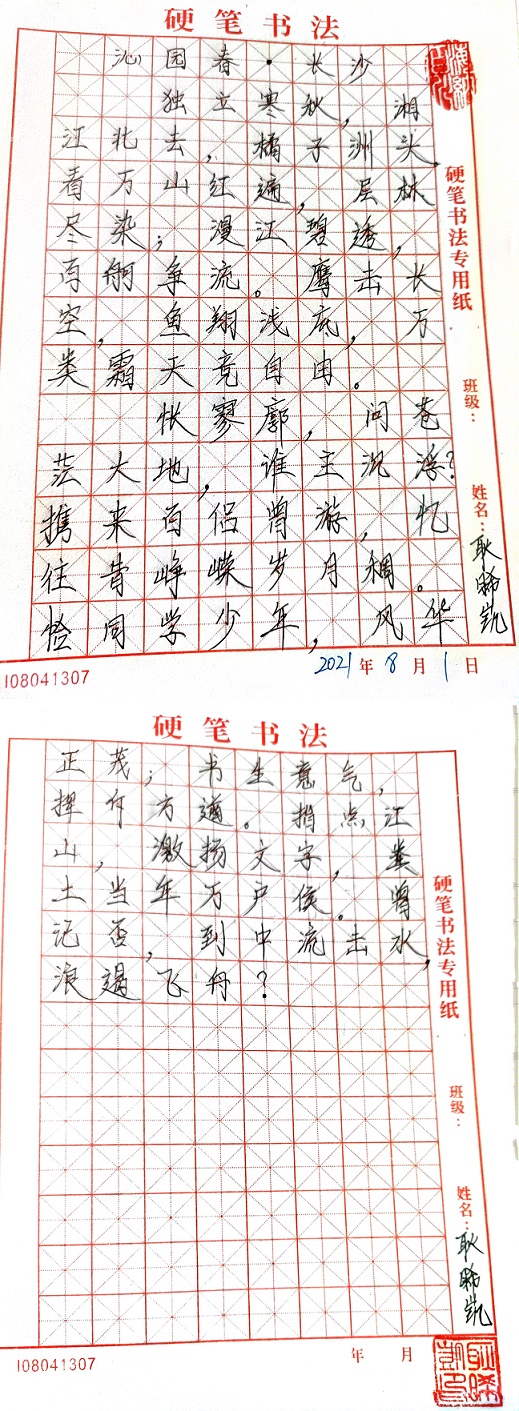 硬笔书法
沁园春·长沙
独立寒秋，湘
江北去，橘子洲头，
看万山红遍，层林
尽染；漫江碧透，
百舸争流。鹰击长
空，鱼翔浅底，万
类霜天竞自由。
怅寥廓，问苍
茫大地，谁主沉浮？
携来百侣曾游，忆
往昔峥嵘岁月稠。
恰同学少年，风华
硬笔书法专用纸
班级：
姓名：耿晞凯
2021年8月1日
108041307
硬笔书法
正茂；书生意气，
挥斥方遒。指点江
山，激扬文字，粪
土当年万户侯。曾
记否，到中流击水，
浪遏飞舟？
硬笔书法专用纸
班级：
姓名：耿晞凯
年 月
108041307